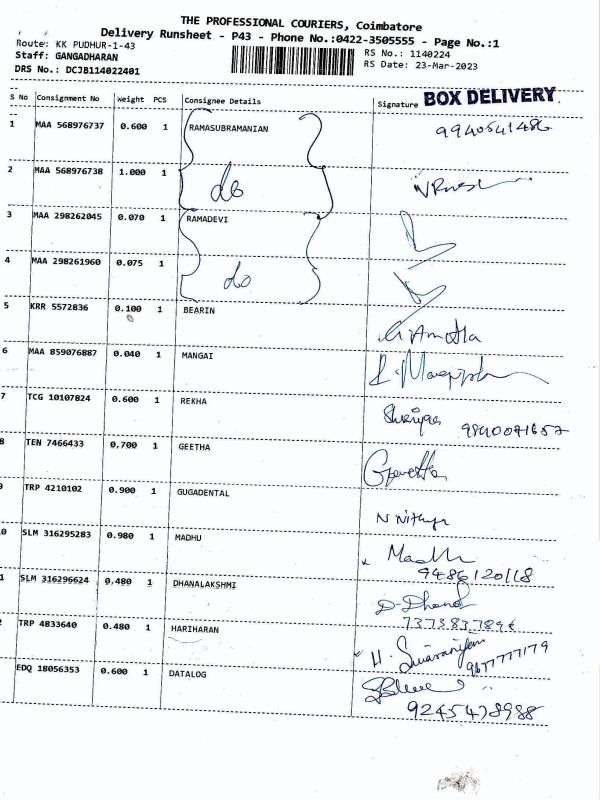 THE PROFESSIONAL COURIERS, Coimbatore
Delivery Runsheet - P43 - Phone No.:0422-3505555 - Page No.:1
Route: KK PUDHUR-1-43 RS No.: 1140224
Staff: GANGADHARAN RS Date: 23-Mar-2023
DRS No.: DCJB114022401
S No Consignment No Weight PCS Consignee Details Signature BOX DELIVERY
1 MAA 568976737 0.600 1 RAMASUBRAMANIAN 9940541486
2 MAA 568976738 1.000 1 do
3 MAA 298262045 0.070 1 RAMADEVI
4 MAA 298261960 0.075 1 do
5 KRR 5572836 0.100 1 BEARIN
6 MAA 859076887 0.040 1 MANGAI
7 TCG 10107824 0.600 1 REKHA
8 TEN 7466433 0.700 1 GEETHA
9 TRP 4210102 0.900 1 GUGADENTAL N Nithya
0 SLM 316295283 0.980 1 MADHU Madhu
9486120118
1 SLM 316296624 0.480 1 DHANALAKSHMI D-Dhanal
2 TRP 4833640 0.480 1 HARIHARAN
9677777179
EDQ 18056353 0.600 1 DATALOG
9245478988